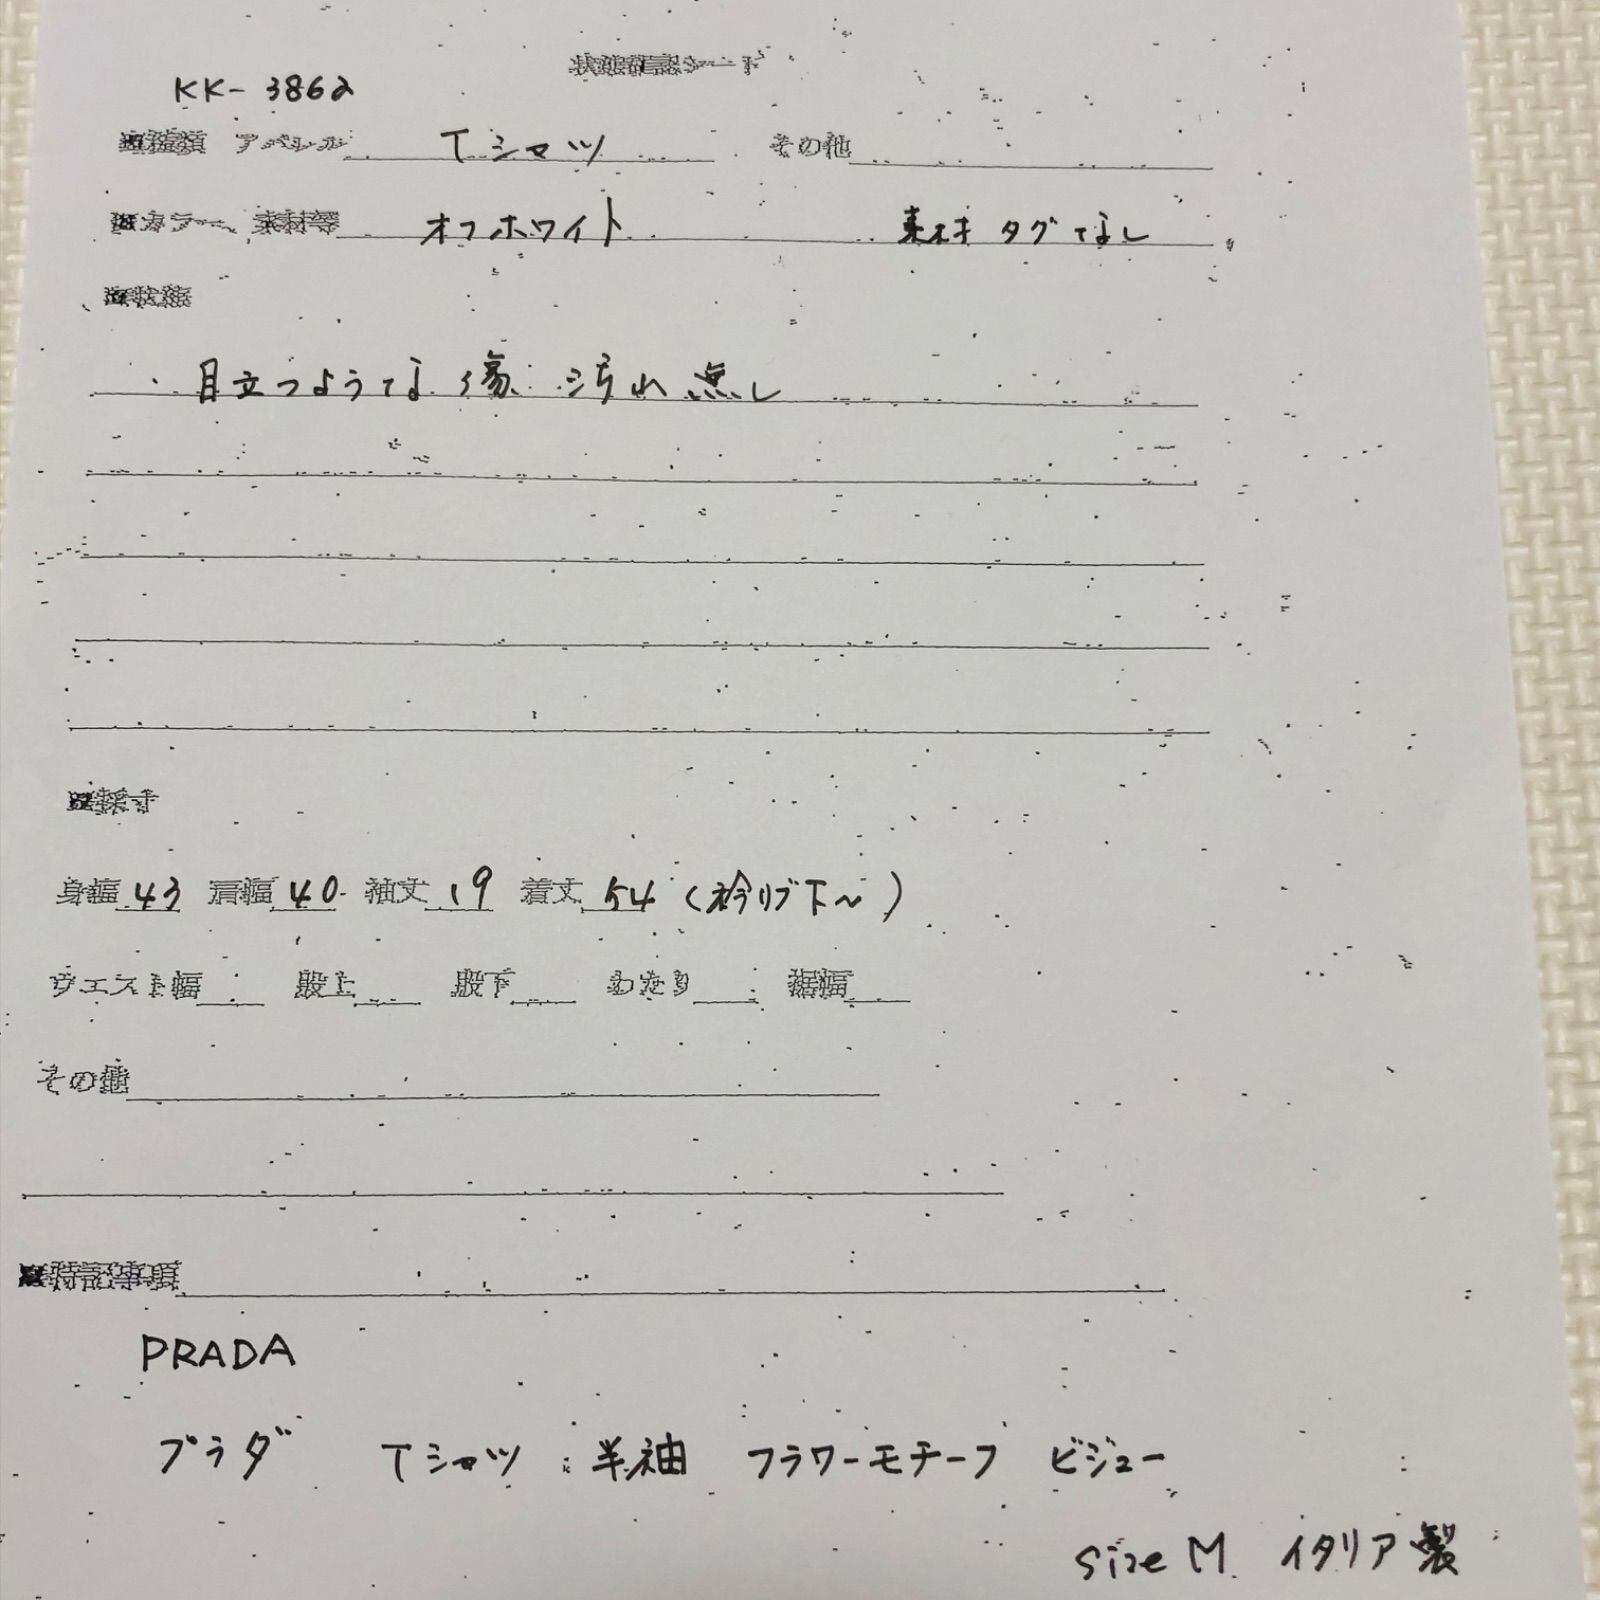 状態確認シート
KK-3862
■種類 アパレル Tシャツ その他
■カラー、素材等 オフホワイト 素材タグなし
■状態
・目立つような傷 汚れ無し
■採寸
身幅 43 肩幅 40 袖丈 19 着丈 54 (衿リブ下~)
ウエスト幅 股上 股下 わたり 裾幅
その他
■特記事項
PRADA
プラダ Tシャツ 半袖 フラワーモチーフ ビジュー
size M イタリア製